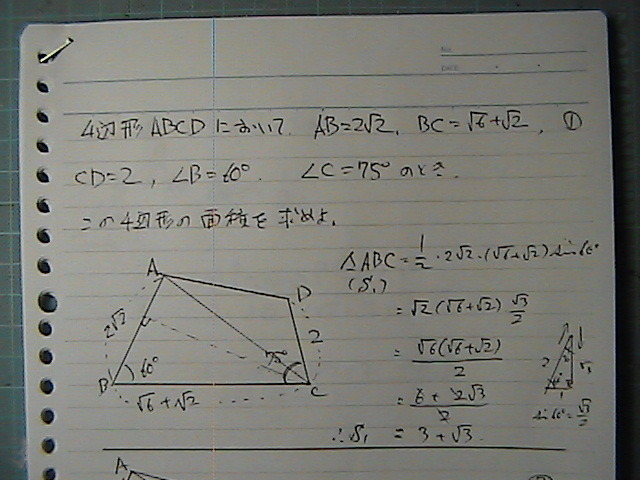 No.
DATE
4辺形ABCDにおいて. AB=2√2, BC=√6+√2, ①
CD=2, ∠B=60°. ∠C=75°のとき.
この4辺形の面積を求めよ。
A
D
B
C
2√2
2
60°
75°
√6+√2
△ABC=1/2・2√2・(√6+√2)sin60°
(S₁)
=√2(√6+√2)√3/2
=√6(√6+√2)/2
=6+2√3/2
∴S₁=3+√3.
2
√3
1
sin60°=√3/2
A